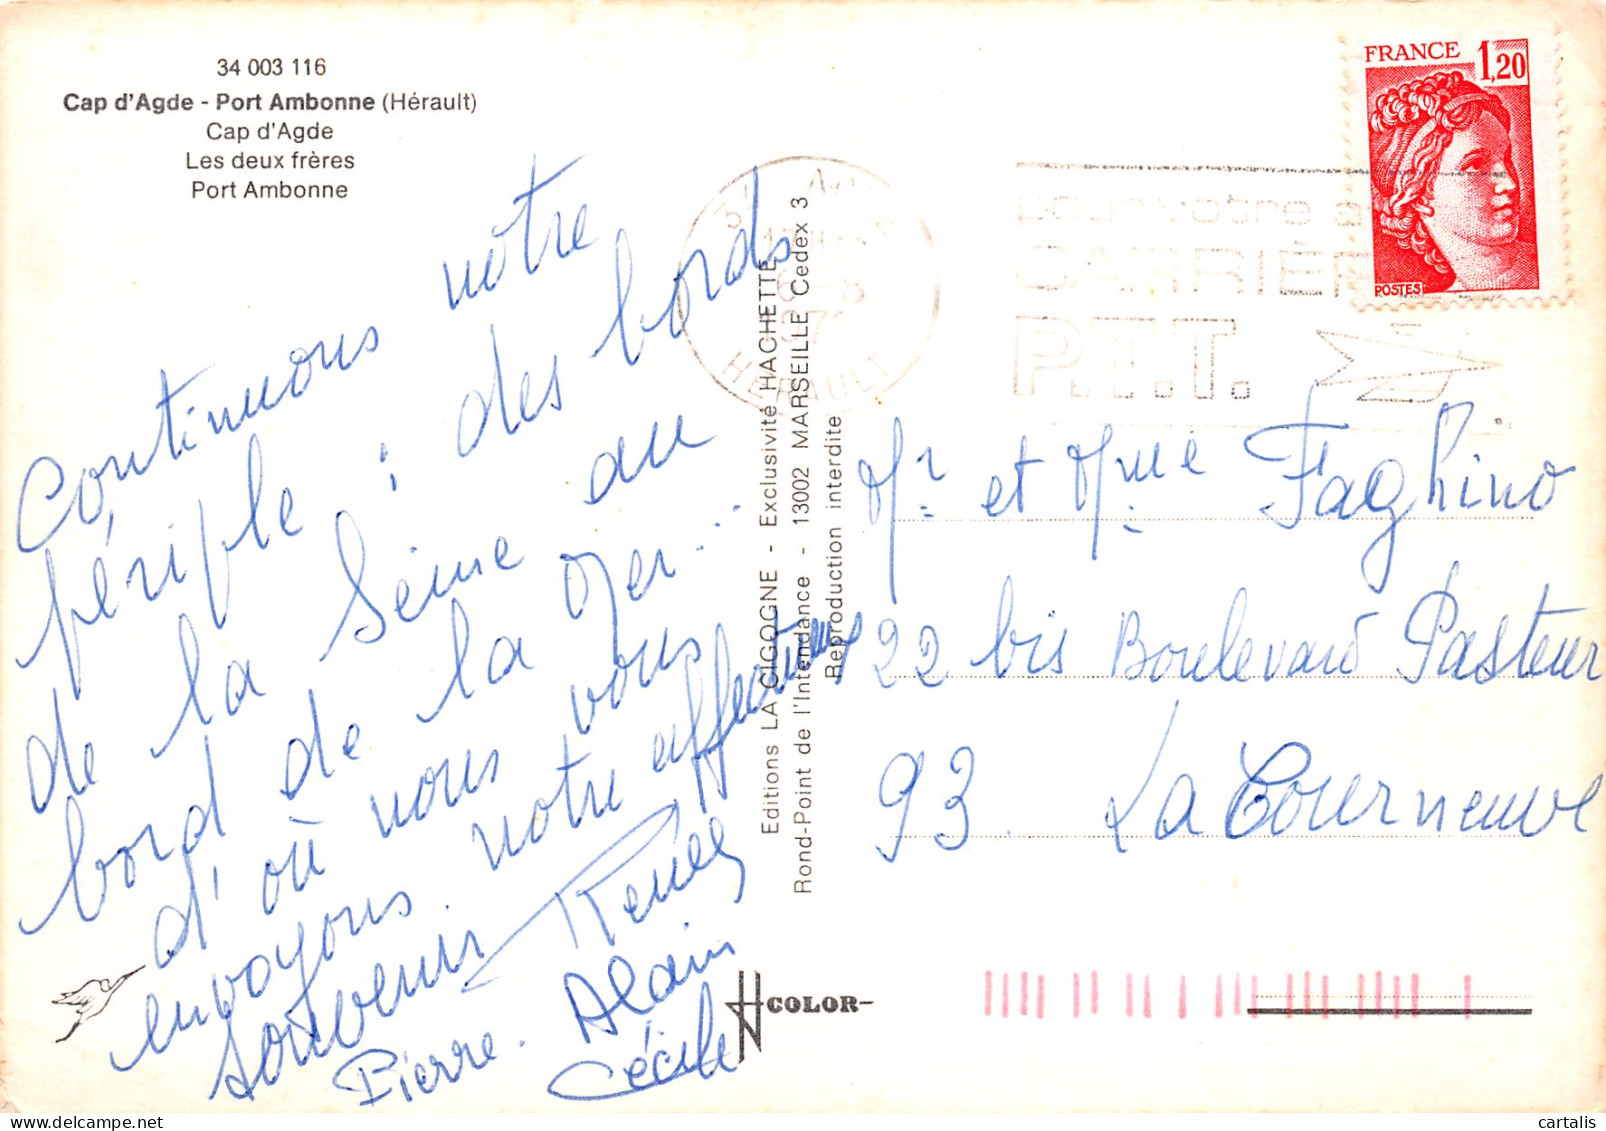 34 003 116
Cap d'Agde - Port Ambonne (Hérault)
Cap d'Agde
Les deux frères
Port Ambonne
Continuons notre
périple ; des bords
de la Seine au
bord de la Mer...
d'où nous vous
envoyons notre affectueux
souvenir Renée
Pierre. Alain
Cécile
Editions LA CIGOGNE - Exclusivité HACHETTE
Rond-Point de l'Intendance - 13002 MARSEILLE Cedex 3
Reproduction interdite
COLOR
HERAULT
pour votre
CARRIÈR
P.T.T.
FRANCE 1,20
POSTES
Mr et Mme Faghino
22 bis Boulevard Pasteur
93 La Courneuve
cartalis